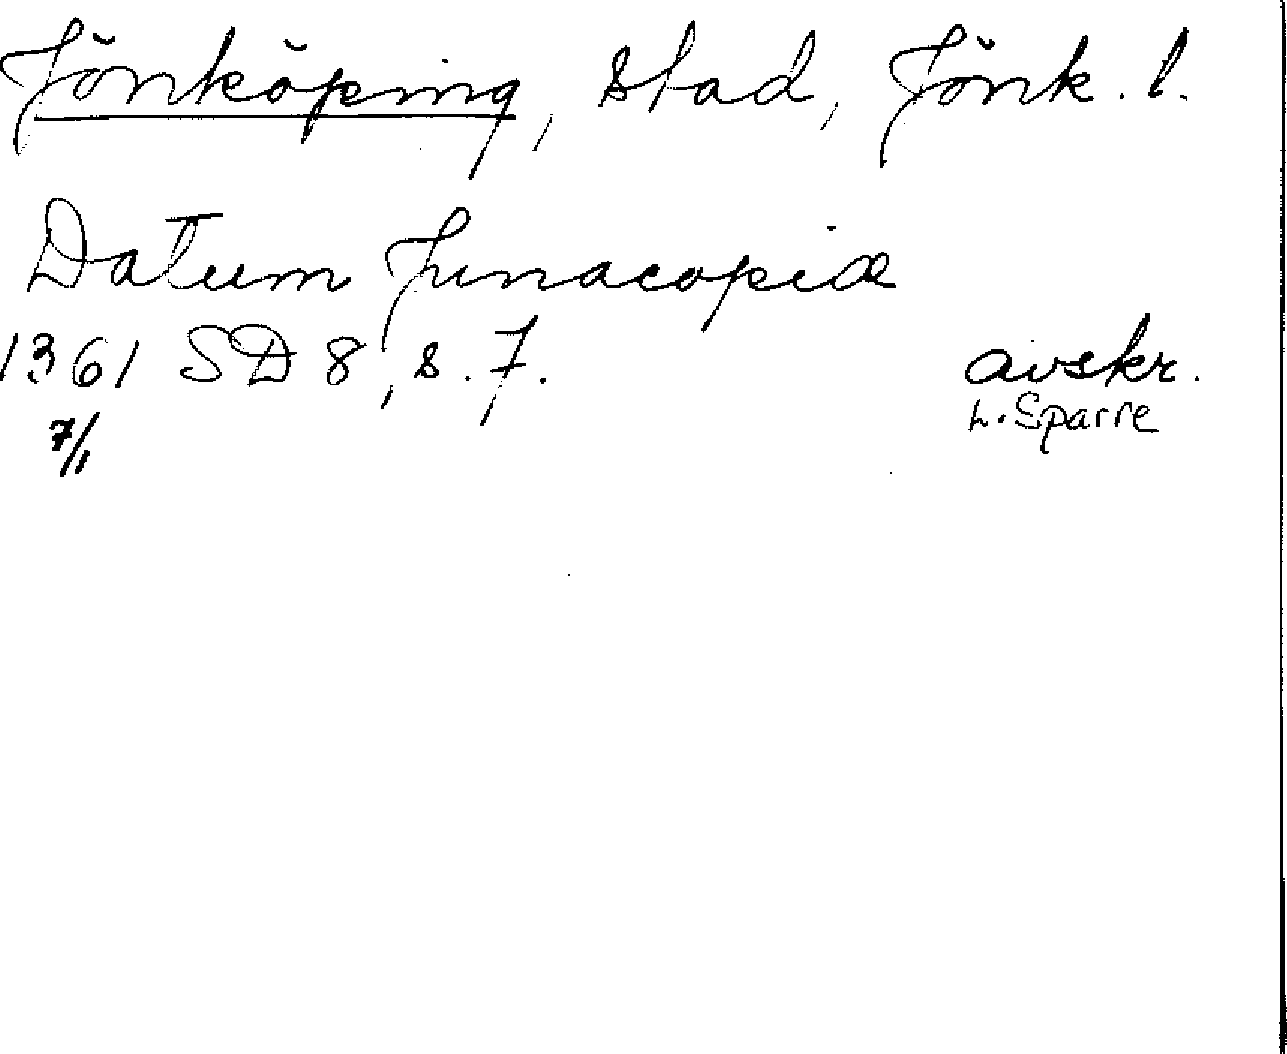 Jönköping, stad, Jönk. l.
Datum Junacopiæ
1361 SD 8, s. 7. avskr.
7/1 L. Sparre